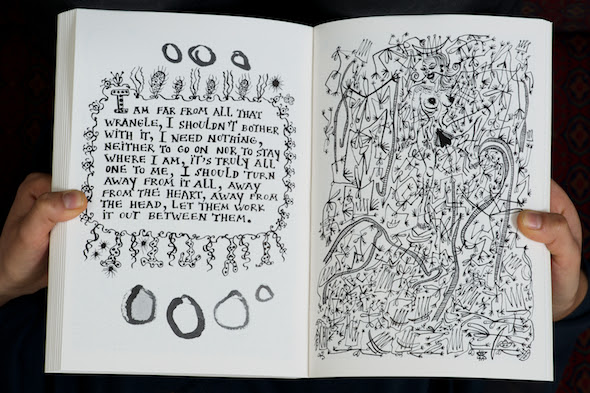 I AM FAR FROM ALL THAT
WRANGLE, I SHOULDN'T BOTHER
WITH IT, I NEED NOTHING,
NEITHER TO GO ON NOR TO STAY
WHERE I AM, IT'S TRULY ALL
ONE TO ME, I SHOULD TURN
AWAY FROM IT ALL, AWAY
FROM THE HEART, AWAY FROM
THE HEAD, LET THEM WORK
IT OUT BETWEEN THEM.